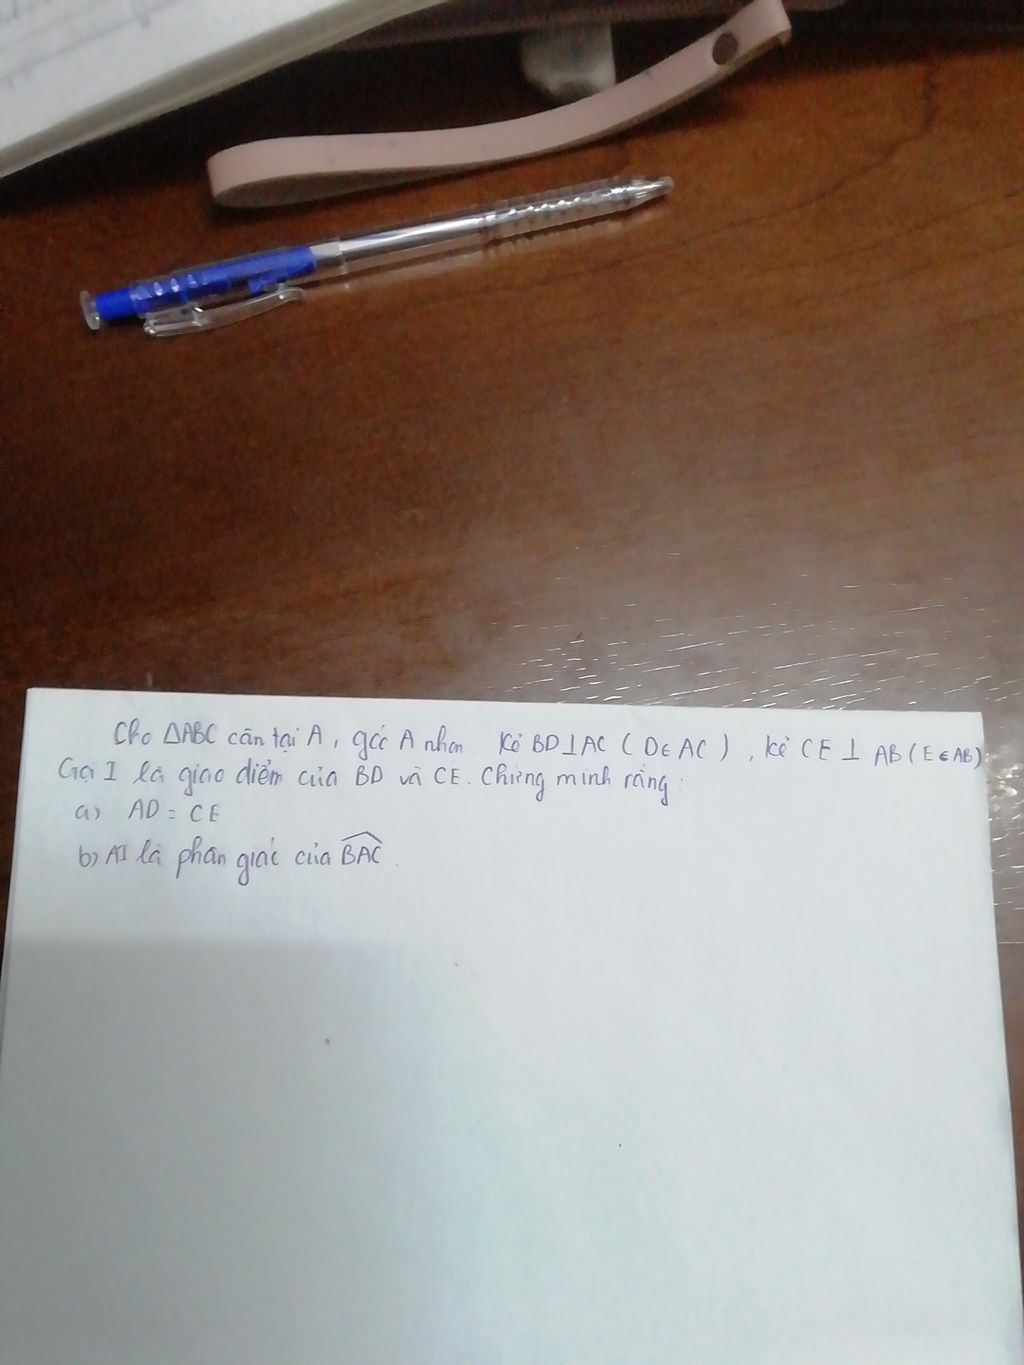 Cho ΔABC cân tại A, góc A nhọn. Kẻ BD⊥AC (D∈AC), kẻ CE ⊥ AB (E∈AB).
Gọi I là giao điểm của BD và CE. Chứng minh rằng:
a) AD = CE
b) AI là phân giác của \widehat{BAC}.